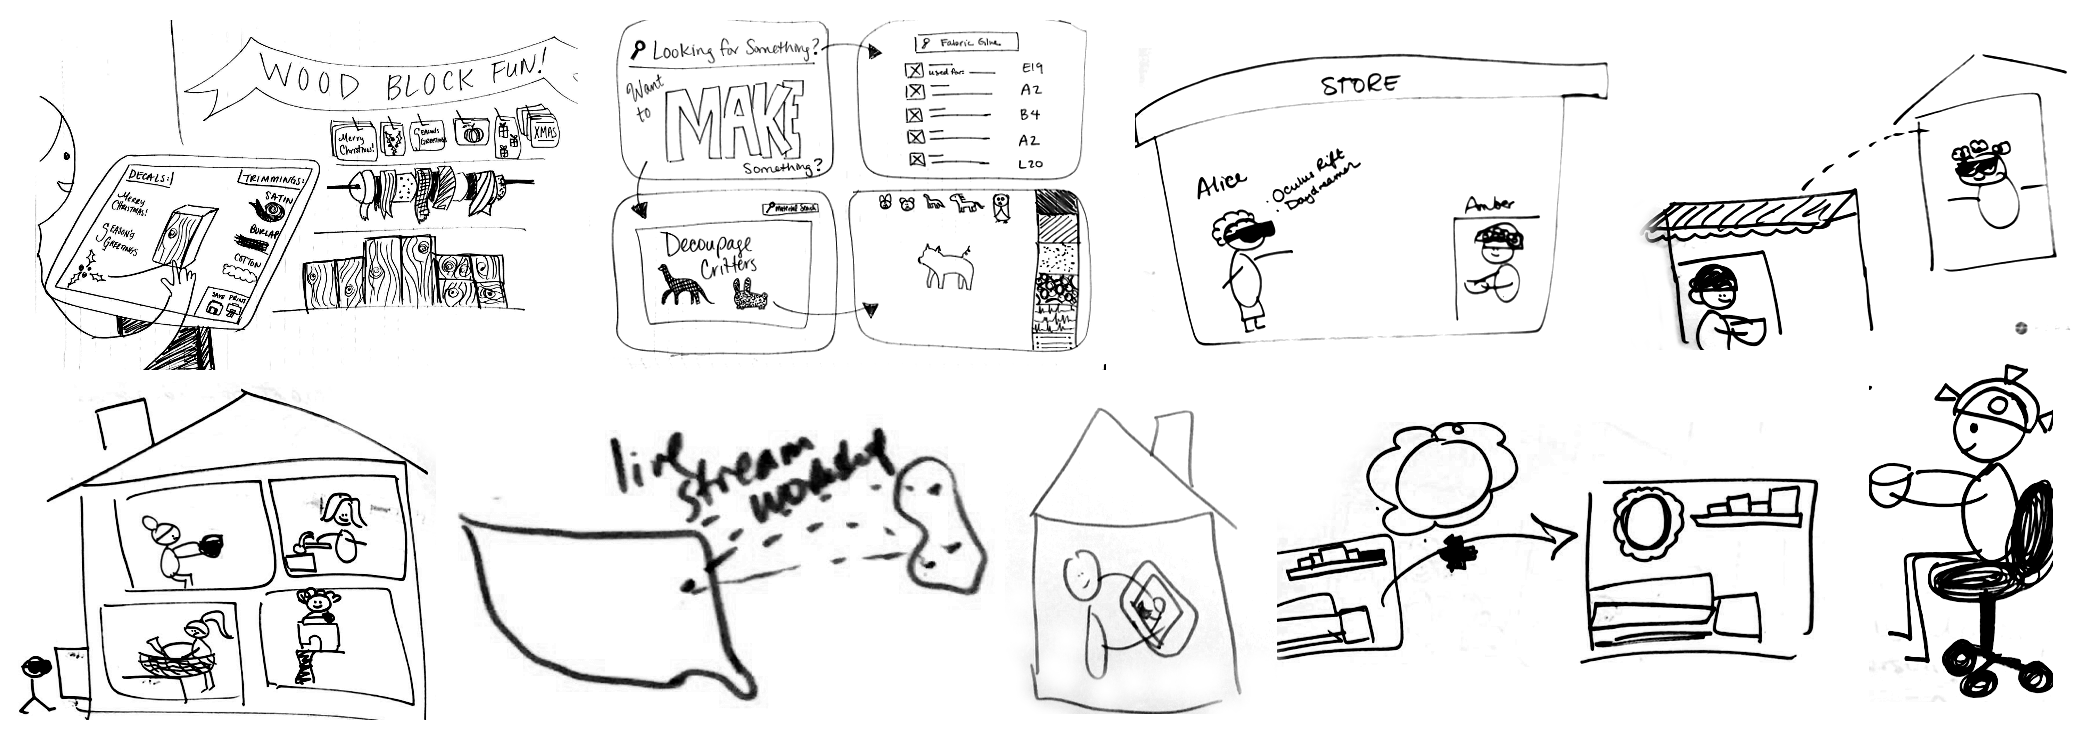 WOOD BLOCK FUN!
Merry
Christmas!
SEASON'S
GREETINGS
XMAS
DECALS:
MERRY
CHRISTMAS!
SEASON'S
GREETINGS
TRIMMINGS:
SATIN
BURLAP
COTTON
SAVE PRINT
Looking for Something?
Want
to
MAKE
Something?
Fabric Glue
used for:
E19
A2
B4
A2
L20
Material Search
Decoupage
Critters
STORE
Alice
: Oculus Rift
Daydreamer
Amber
live
stream
workshop